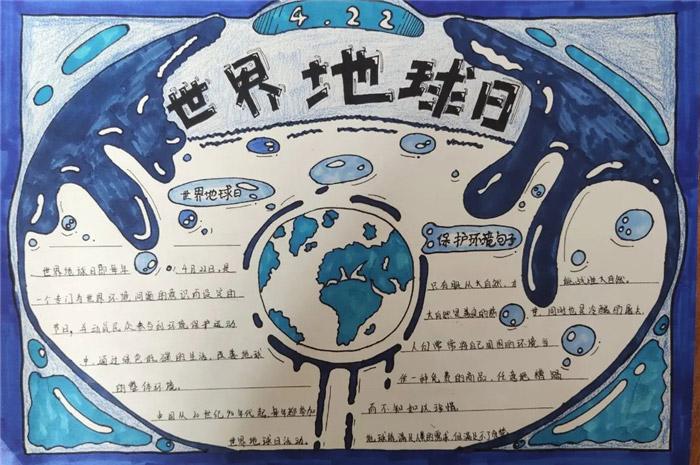 4.22
世界地球日
世界地球日
世界地球日即每年 4月22日,是
一个专门为世界环境问题的意识而设定的
节日,并动员民众参与到环境保护运动
中,通过绿色低碳的生活,改善地球
的整体环境。
中国从20世纪90年代起,每年都参加
世界地球日活动。
保护环境句子
只有服从大自然,才 能战胜大自然。
大自然是善良的慈 同时也是冷酷的屠夫
人们常常将自己周围的环境当
作一种免费的商品,任意地糟蹋
而不知加以珍惜。
地球能满足人类的需要,但满足不了